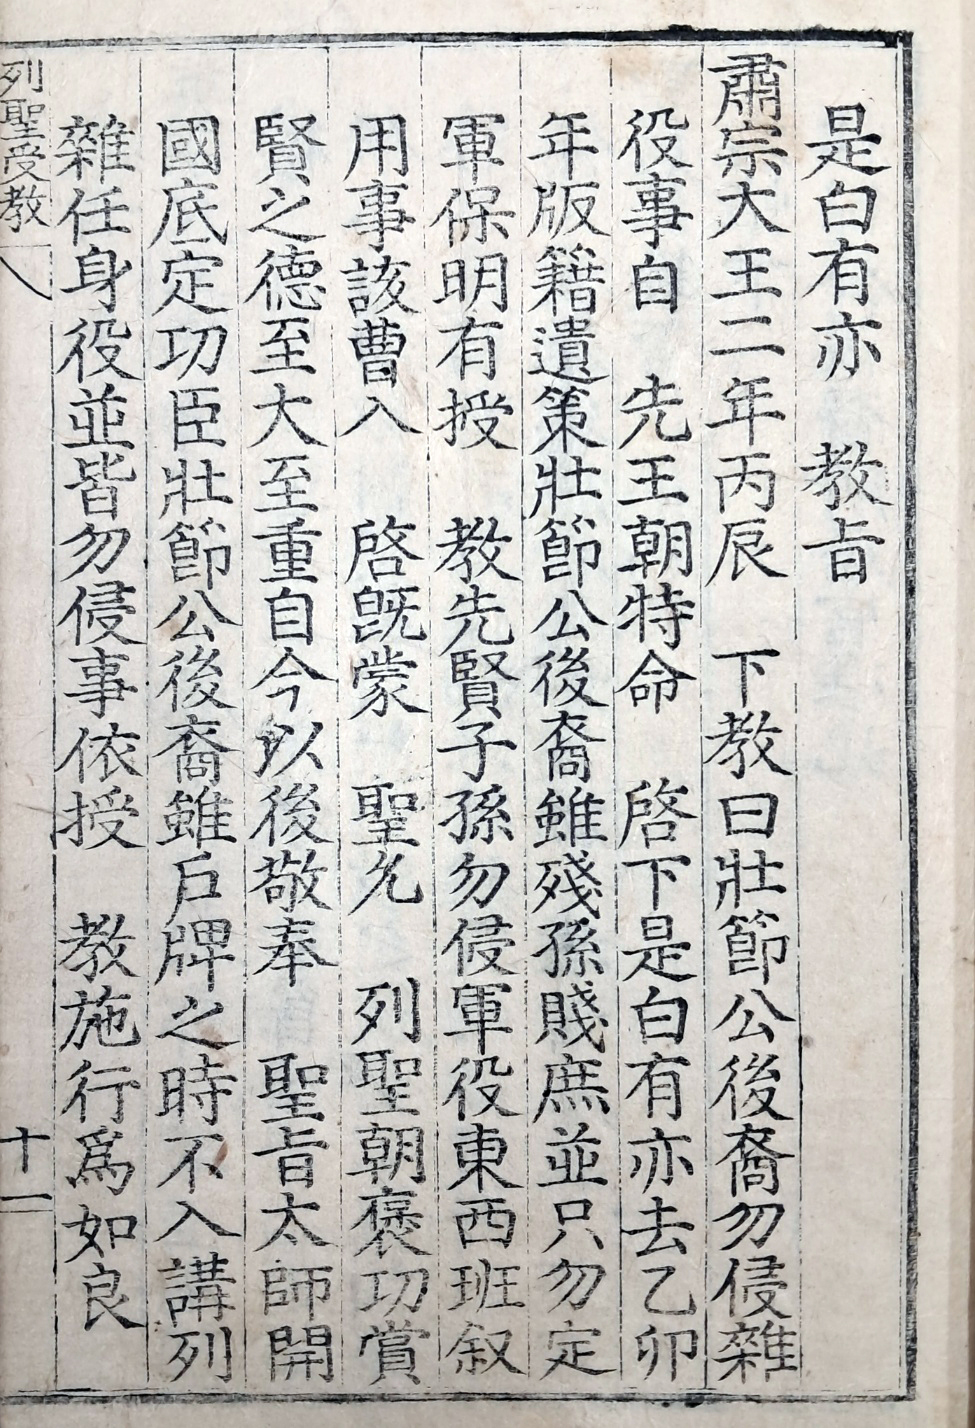 是白有亦 教旨
肅宗大王二年丙辰 下教曰壯節公後裔勿侵雜
役事自 先王朝特命 啓下是白有亦去乙卯
年版籍遺策壯節公後裔雖殘孫賤庶並只勿定
軍保明有授 教先賢子孫勿侵軍役東西班叙
用事該曹入 啓旣蒙 聖允 列聖朝褒功賞
賢之德至大至重自今以後敬奉 聖旨太師開
國底定功臣壯節公後裔雖戶牌之時不入講列
雜任身役並皆勿侵事依授 教施行爲如良
列聖受教 十一